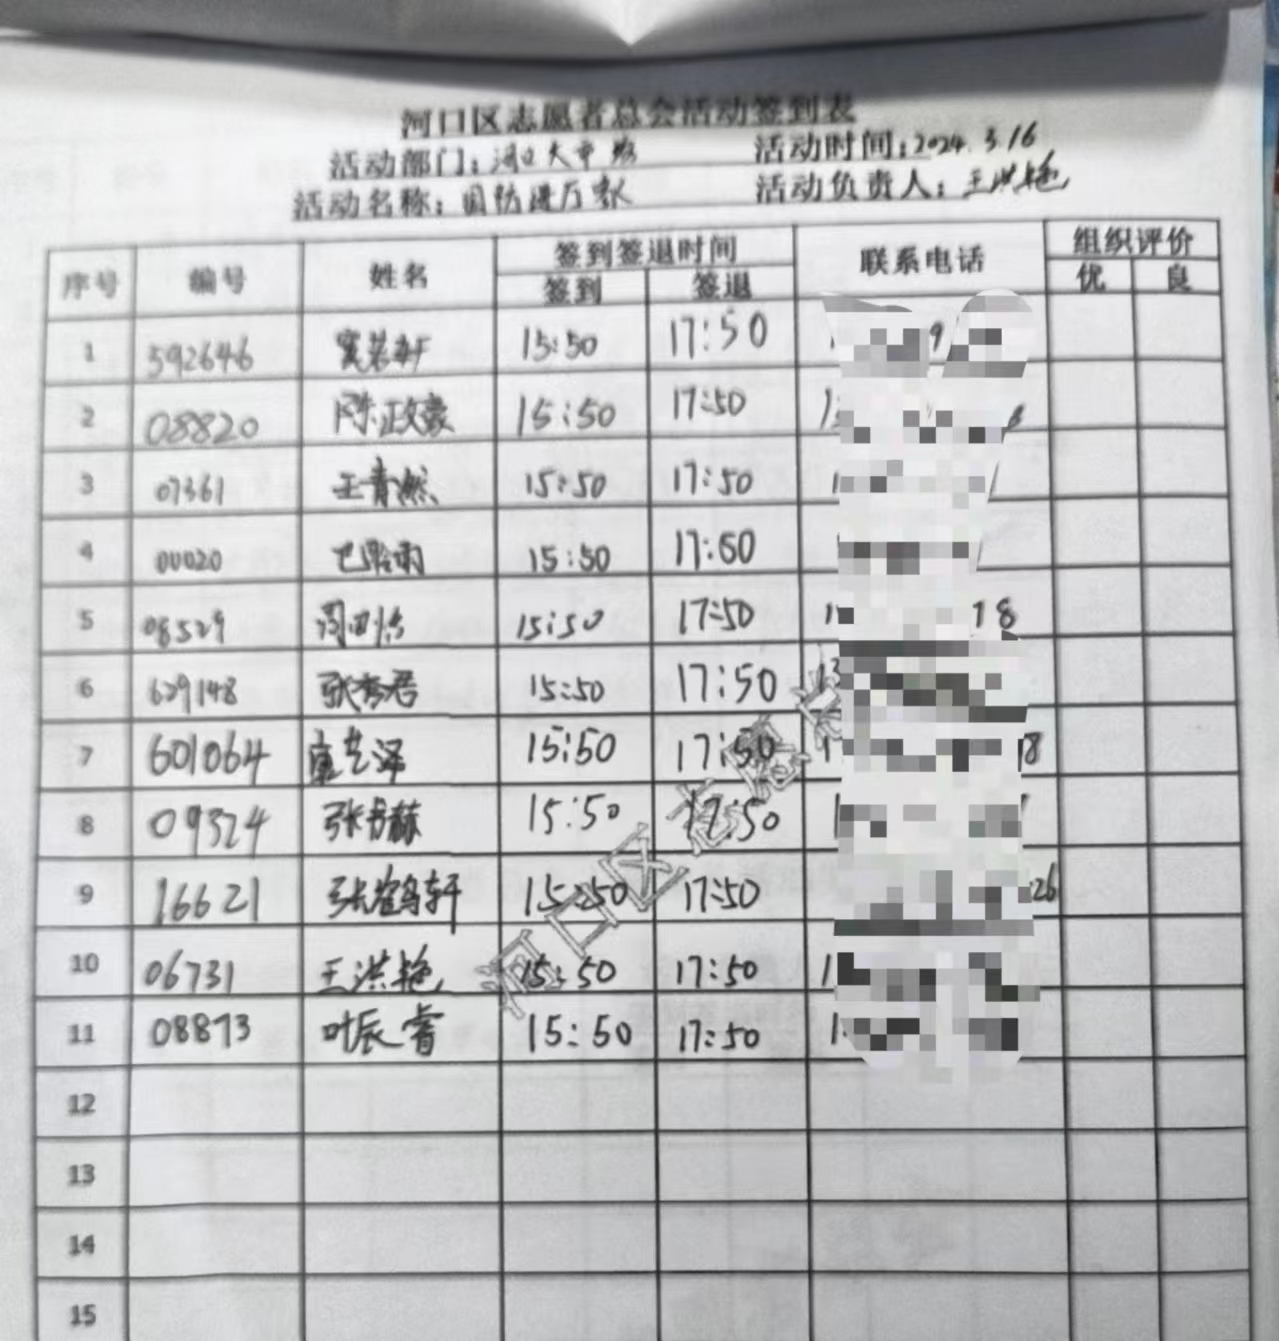 河口区志愿者总会活动签到表
活动部门: 活动时间:2024.3.16
活动名称:国防进万家 活动负责人:王洪艳
序号 编号 姓名 签到签退时间 联系电话 组织评价
签到 签退 优 良
1 592646 15:50 17:50 9
2 08820 陈政豪 15:50 17:50
3 07361 王青燃 15:50 17:50
4 00020 15:50 17:50
5 08529 15:50 17:50 18
6 629148 张秀君 15:50 17:50
7 601064 15:50 17:50 18
8 09324 15:50 17:50
9 16621 张鹤轩 15:50 17:50 26
10 06731 王洪艳 15:50 17:50
11 08873 叶辰睿 15:50 17:50
12
13
14
15
河口区志愿者